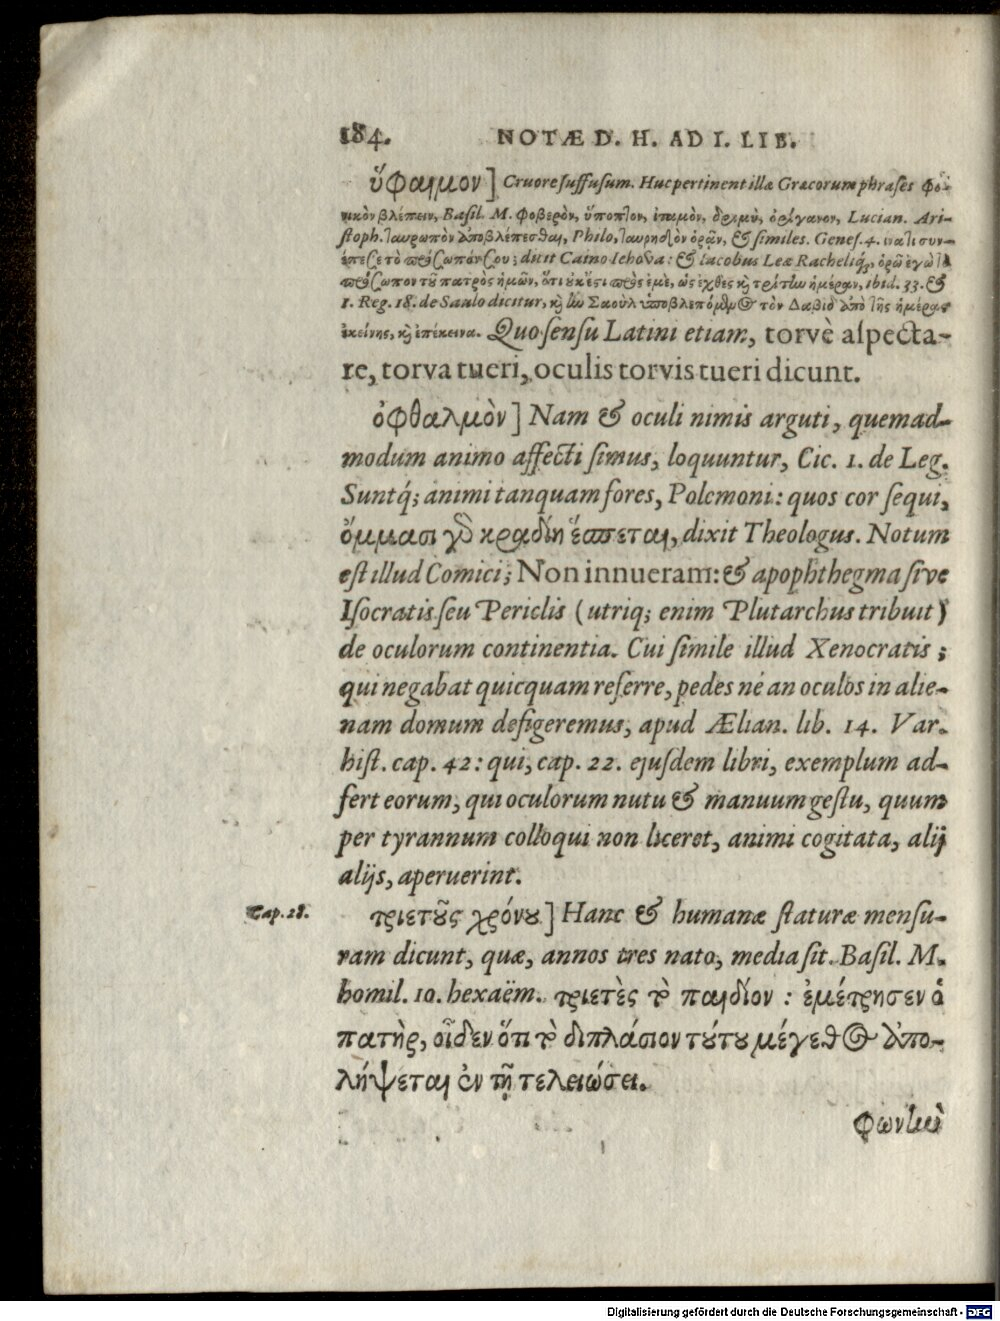 184. NOTÆ D. H. AD I. LIB.
ὕφαιμον] Cruore suffusum. Huc pertinent illæ Græcorum phrases φο-
νικὸν βλέπειν, Basil. M. φοβερὸν, ὕποπτον, ἰταμὸν, δριμὺ, ὀρίγανον, Lucian. Ari-
stoph. ταυρωπὸν ἀποβλέπεσθαι, Philo, ταυρηδὸν ὁρᾷν, & similes. Genes. 4. ινατι συν-
έπεσε τὸ πρόσωπόν σου; dicit Caino Iehova: & Iacobus Leæ Racheliq;, ὁρῶ ἐγὼ τὸ
πρόσωπον τοῦ πατρὸς ἡμῶν, ὅτι οὐκ ἔστι πρὸς ἐμὲ, ὡς ἐχθὲς καὶ τρίτην ἡμέραν, ibid. 33. &
1. Reg. 18. de Saulo dicitur, καὶ ἦν Σαοὺλ ὑποβλεπόμενος τὸν Δαβὶδ ἀπὸ τῆς ἡμέρας
ἐκείνης, καὶ ἐπέκεινα. Quo sensu Latini etiam, torvè aspecta-
re, torva tueri, oculis torvis tueri dicunt.
ὀφθαλμὸν] Nam & oculi nimis arguti, quemad-
modum animo affecti simus, loquuntur, Cic. 1. de Leg.
Suntq́; animi tanquam fores, Polemoni: quos cor sequi,
ὄμμασι γὸ κραδίη ἕσπεται, dixit Theologus. Notum
est illud Comici; Non innueram: & apophthegma sive
Isocratis seu Periclis (utriq; enim Plutarchus tribuit)
de oculorum continentia. Cui simile illud Xenocratis;
qui negabat quicquam referre, pedes né an oculos in alie-
nam domum defigeremus, apud Ælian. lib. 14. Var.
hist. cap. 42: qui, cap. 22. ejusdem libri, exemplum ad-
fert eorum, qui oculorum nutu & manuum gestu, quum
per tyrannum colloqui non liceret, animi cogitata, alij
alijs, aperuerint.
Cap. 28. τριετοῦς χρόνου] Hanc & humanæ staturæ mensu-
ram dicunt, quæ, annos tres nato, media sit. Basil. M.
homil. 10. hexaëm. τριετὲς τὸ παιδίον : ἐμέτρησεν ὁ
πατὴρ, οἶδεν ὅτι τὸ διπλάσιον τούτου μέγεθος ἀπο-
λήψεται ἐν τῇ τελειώσει.
φωνὴν
Digitalisierung gefördert durch die Deutsche Forschungsgemeinschaft - DFG